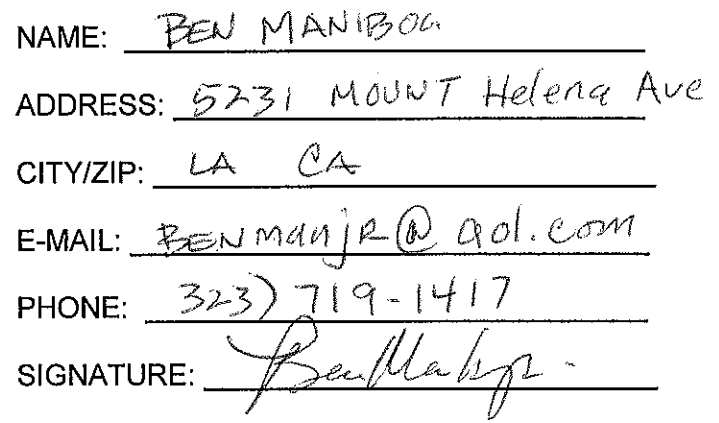 NAME: BEN MANIBOG
ADDRESS: 5231 MOUNT Helena Ave
CITY/ZIP: LA CA
E-MAIL: BENmanjR@aol.com
PHONE: 323) 719-1417
SIGNATURE: